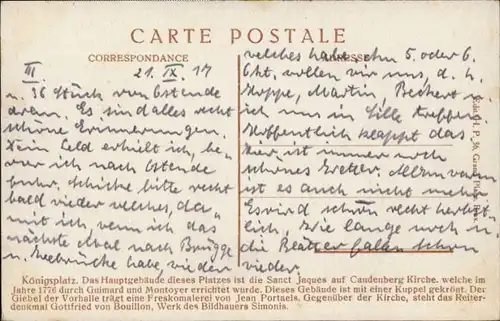 CARTE POSTALE
CORRESPONDANCE
ADRESSE
III
21. IX. 17
u. 36 Stück von Ostende
daran. Es sind alles recht
schöne Erinnerungen.
Kein Geld erhielt ich, be-
vor ich nach Ostende
fuhr. Schicke bitte recht
bald wieder welches, da-
mit ich, wenn ich das
nächste Mal nach Brügge
u. Zeebrücke fahre, wieder
welches habe. Am 5. oder 6.
Okt. wollen wir uns, d. h.
Hoppe, Martin, Beckert u
ich uns in Lille treffen
Hoffentlich klappt das
Hier ist immer noch
schönes Wetter. Allzu warm
ist es auch nicht mehr
Es wird schon recht herbst-
lich. Wie lange noch u.
die Blätter fallen schon
wieder.
Königsplatz. Das Hauptgebäude dieses Platzes ist die Sanct Jaques auf Caudenberg Kirche. welche im
Jahre 1776 durch Guimard und Montoyer errichtet wurde. Dieses Gebäude ist mit einer Kuppel gekrönt. Der
Giebel der Vorhalle trägt eine Freskomalerei von Jean Portaels. Gegenüber der Kirche, steht das Reiter-
denkmal Gottfried von Bouillon, Werk des Bildhauers Simonis.